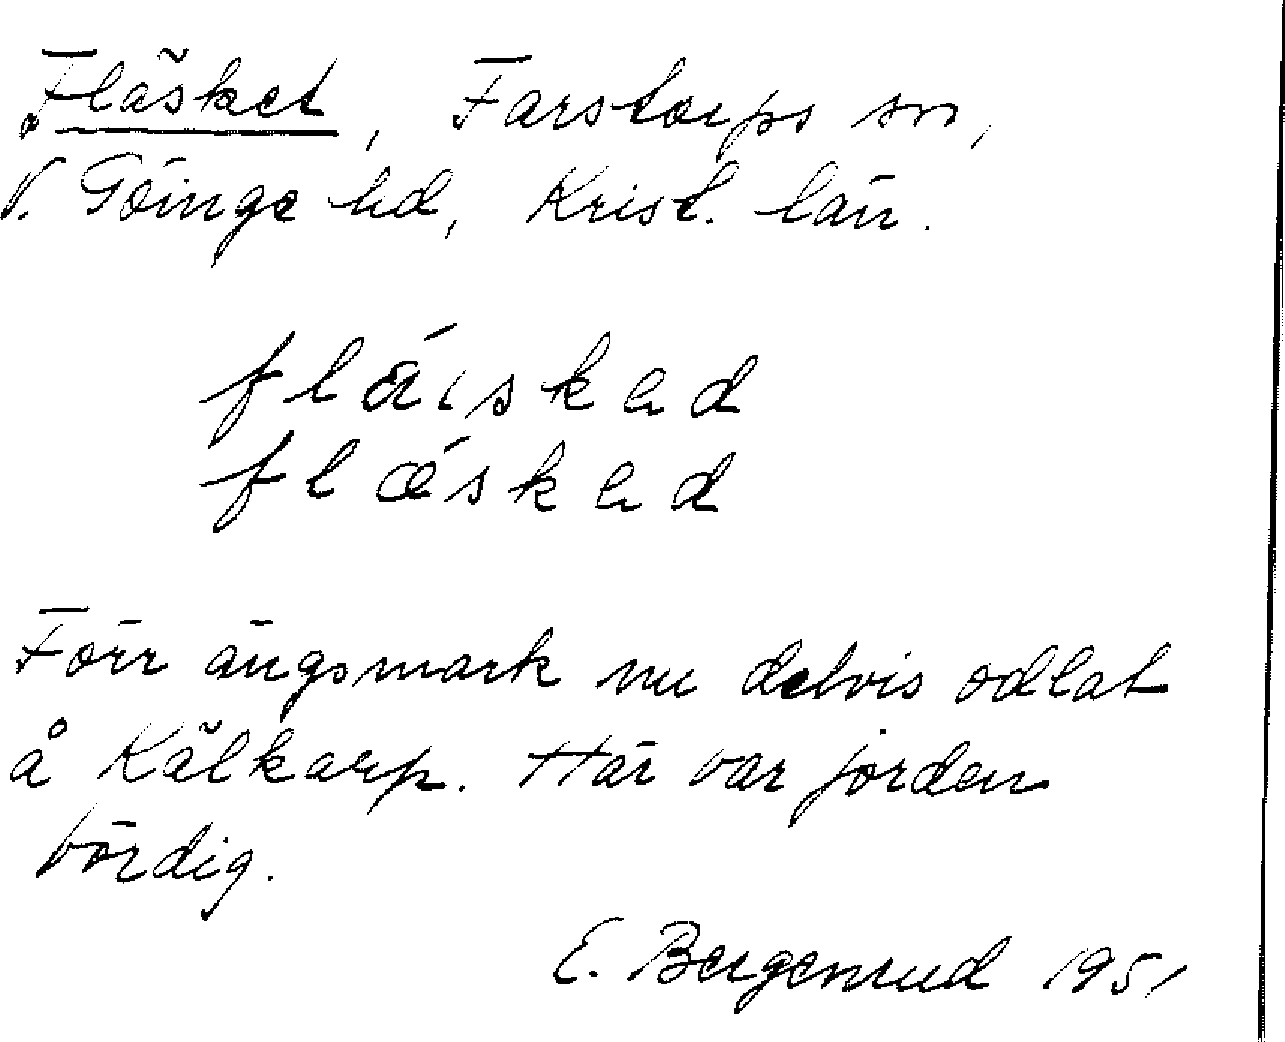 Fläsket, Farstorps sn,
V. Göinge hd, Krist. län.
fläiskad
flæskad
Förr ängsmark nu delvis odlat
å Kälkarp. Här var jorden
bördig.
E. Bergenrud 1951